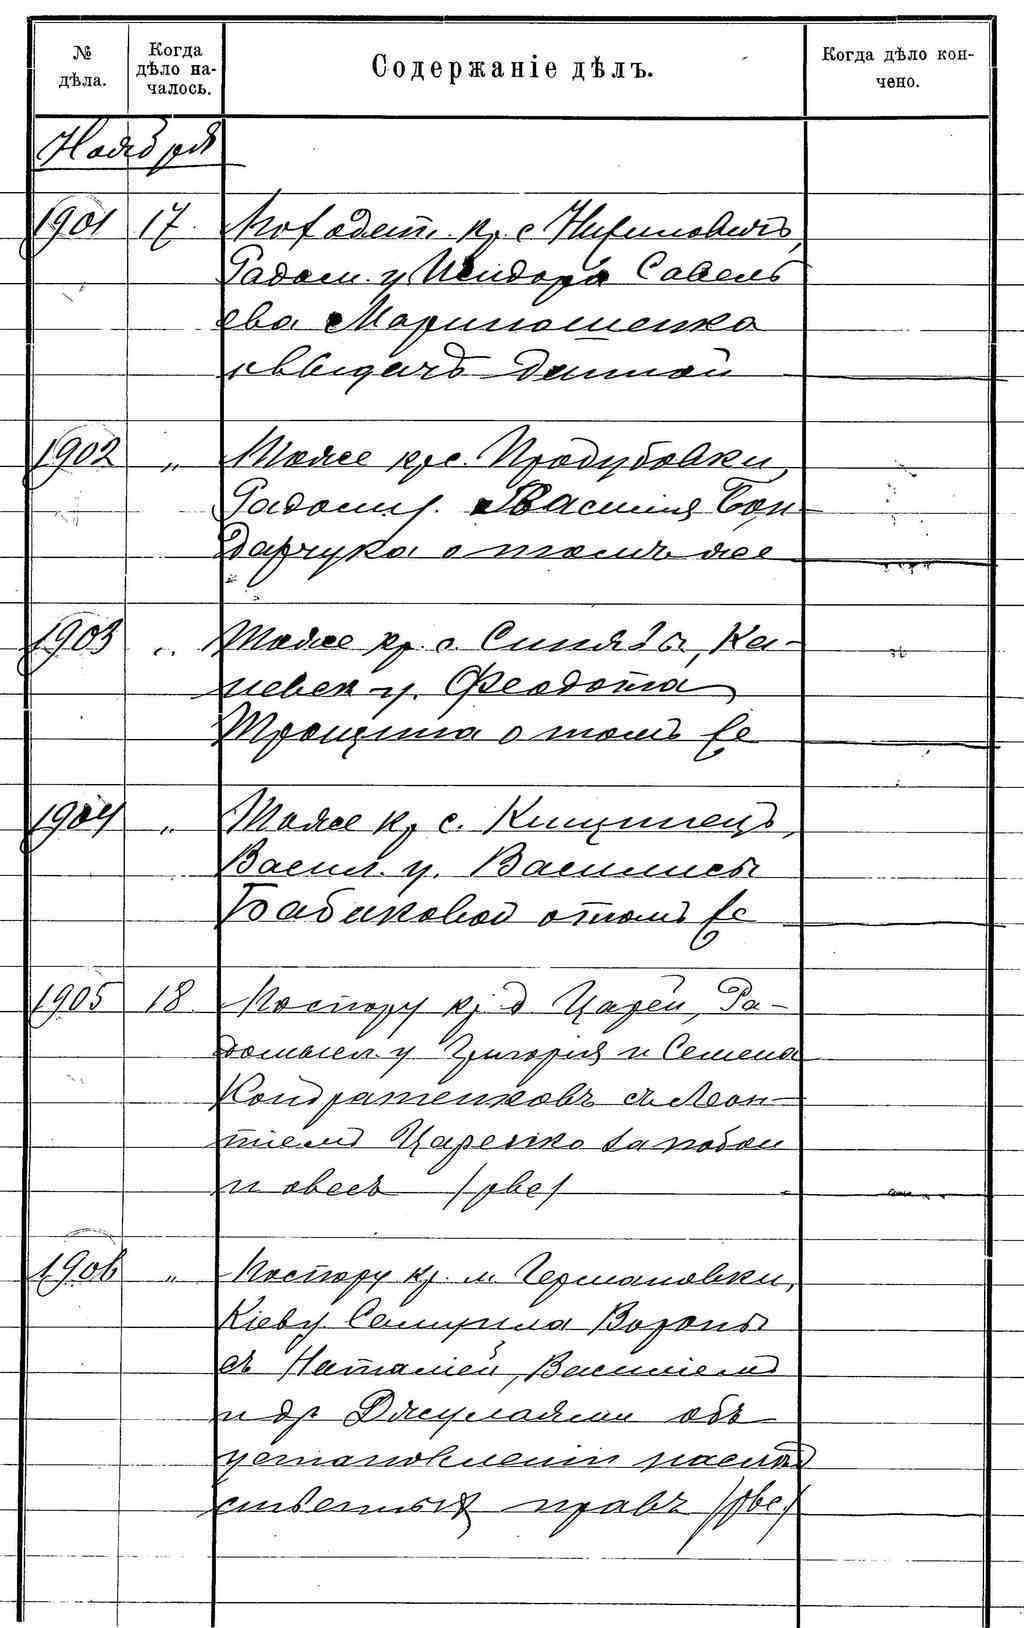 № дѣла.
Когда дѣло началось.
Содержаніе дѣлъ.
Когда дѣло кончено.
Ноября
1901 17. По ходат. кр. с.
Радом. у. Исидора Савель
ева Мариношенка
о выдачѣ данной
1902 „ Тоже кр. с. Продубовки,
Радом. у. Василія Бон-
дарчука о томъ же
1903 „ Тоже кр. с. Синявы, Ка-
невск. у. Феодота
Трощина о томъ же
1904 „ Тоже кр. с. Кищинецъ,
Васил. у. Василисы
Бабиковой о томъ же
1905 18. По спору кр. д. Царей, Ра-
домысл. у. Григорія и Семена
Кондратенковъ съ Леон-
тіемъ Царенко за побои
и овесъ
1906 „ По спору кр. м. Германовки,
Кіев. у. Самуила Вороны
съ Наталіей, Василіемъ
и др. Джулаями объ
установленіи наслѣд
ственныхъ правъ